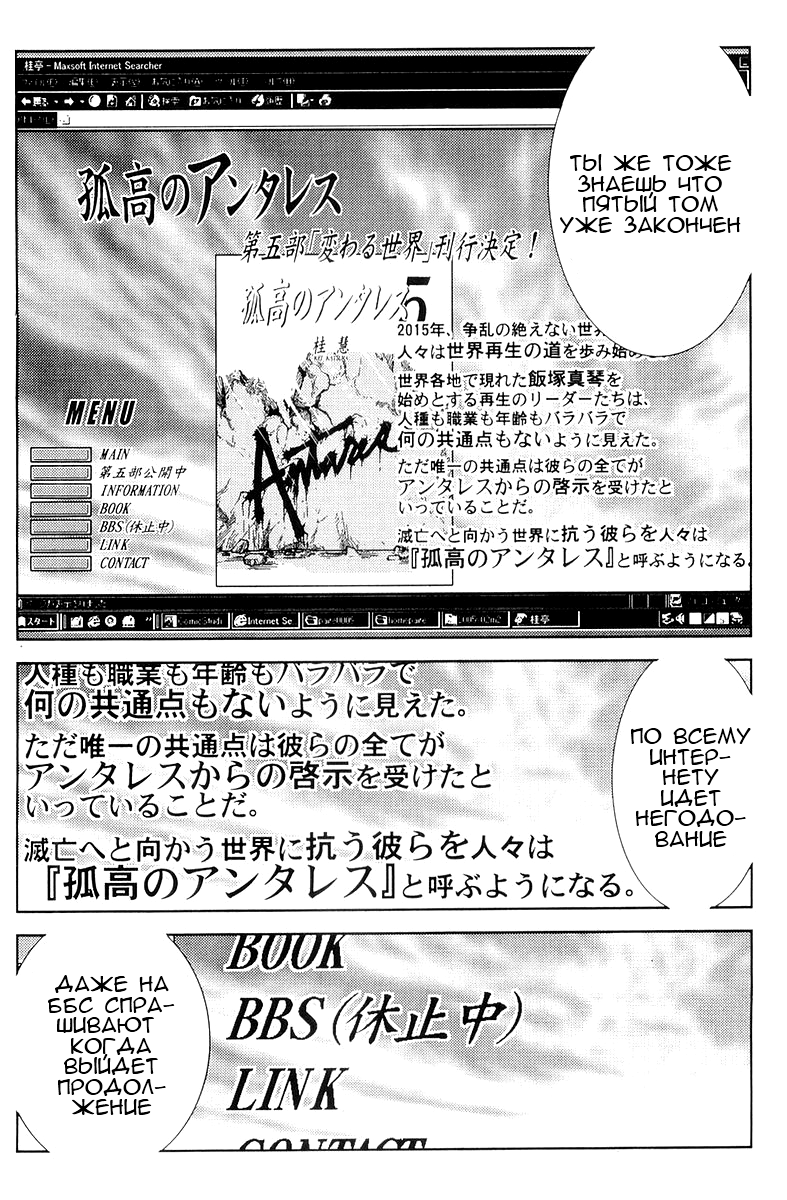 桂亭 - Maxsoft Internet Searcher
ТЫ ЖЕ ТОЖЕ
ЗНАЕШЬ ЧТО
ПЯТЫЙ ТОМ
УЖЕ ЗАКОНЧЕН
孤高のアンタレス
第五部「変わる世界」刊行決定!
孤高のアンタレス5
桂 慧
Antares
2015年、争乱の絶えない世界
人々は世界再生の道を歩み始め
世界各地で現れた飯塚真琴を
始めとする再生のリーダーたちは、
人種も職業も年齢もバラバラで
何の共通点もないように見えた。
ただ唯一の共通点は彼らの全てが
アンタレスからの啓示を受けたと
いっていることだ。
滅亡へと向かう世界に抗う彼らを人々は
『孤高のアンタレス』と呼ぶようになる。
MENU
MAIN
第五部公開中
INFORMATION
BOOK
BBS(休止中)
LINK
CONTACT
スタート
Internet Se
homepage
桂亭
人種も職業も年齢もバラバラで
何の共通点もないように見えた。
ただ唯一の共通点は彼らの全てが
アンタレスからの啓示を受けたと
いっていることだ。
滅亡へと向かう世界に抗う彼らを人々は
『孤高のアンタレス』と呼ぶようになる。
ПО ВСЕМУ
ИНТЕР-
НЕТУ
ИДЕТ
НЕГОДО-
ВАНИЕ
ДАЖЕ НА
ББС СПРА-
ШИВАЮТ
КОГДА
ВЫЙДЕТ
ПРОДОЛ-
ЖЕНИЕ
BOOK
BBS(休止中)
LINK
CONTACT